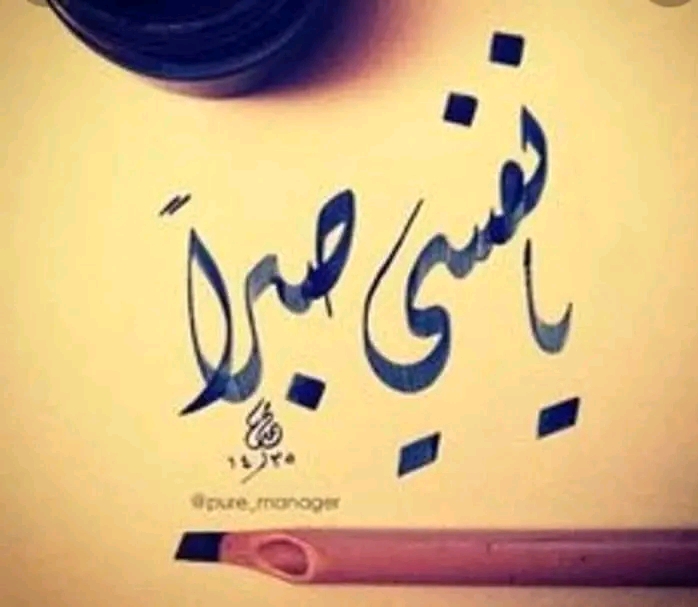 يا نفسي صبراً
١٤٣٥
@pure_manager